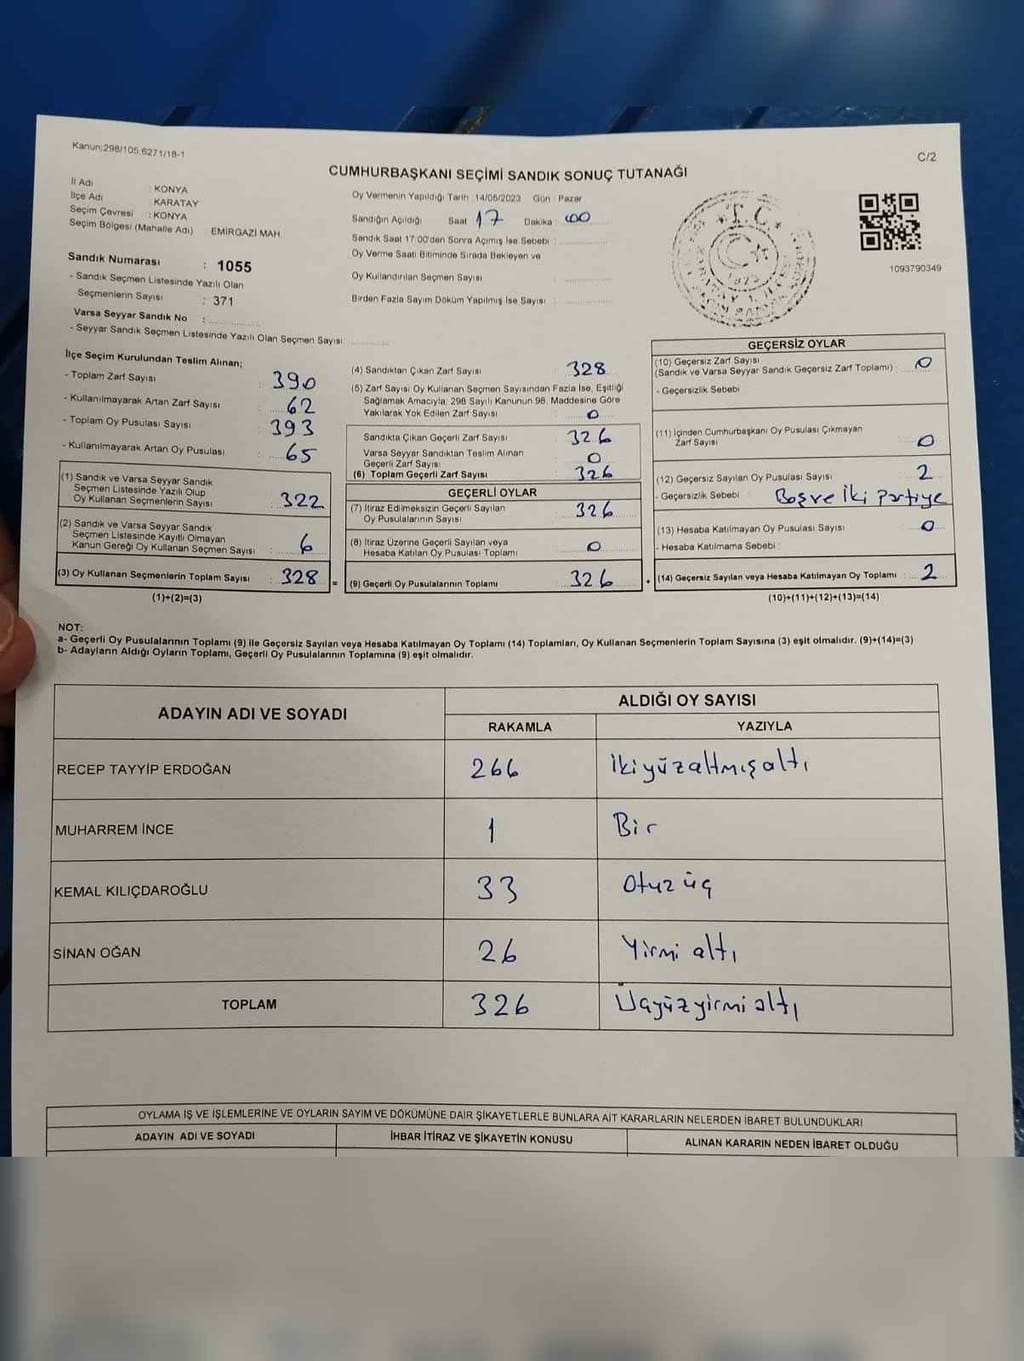 Kanun:298/105,6271/18-1
C/2
CUMHURBAŞKANI SEÇİMİ SANDIK SONUÇ TUTANAĞI
İl Adı : KONYA
İlçe Adı : KARATAY
Seçim Çevresi : KONYA
Seçim Bölgesi (Mahalle Adı) EMİRGAZİ MAH.
Sandık Numarası : 1055
- Sandık Seçmen Listesinde Yazılı Olan
Seçmenlerin Sayısı : 371
Varsa Seyyar Sandık No :
- Seyyar Sandık Seçmen Listesinde Yazılı Olan Seçmen Sayısı:
Oy Vermenin Yapıldığı Tarih :14/05/2023 Gün : Pazar
Sandığın Açıldığı Saat 17 Dakika : 00
Sandık Saat 17:00'den Sonra Açılmış İse Sebebi :
Oy Verme Saati Bitiminde Sırada Bekleyen ve
Oy Kullandırılan Seçmen Sayısı :
Birden Fazla Sayım Döküm Yapılmış İse Sayısı :
T.C.
1923
1093790349
İlçe Seçim Kurulundan Teslim Alınan;
- Toplam Zarf Sayısı : 390
- Kullanılmayarak Artan Zarf Sayısı : 62
- Toplam Oy Pusulası Sayısı : 393
- Kullanılmayarak Artan Oy Pusulası : 65
(1) Sandık ve Varsa Seyyar Sandık
Seçmen Listesinde Yazılı Olup
Oy Kullanan Seçmenlerin Sayısı : 322
(2) Sandık ve Varsa Seyyar Sandık
Seçmen Listesinde Kayıtlı Olmayan
Kanun Gereği Oy Kullanan Seçmen Sayısı : 6
(3) Oy Kullanan Seçmenlerin Toplam Sayısı : 328 =
(1)+(2)=(3)
(4) Sandıktan Çıkan Zarf Sayısı : 328
(5) Zarf Sayısı Oy Kullanan Seçmen Sayısından Fazla İse, Eşitliği
Sağlamak Amacıyla; 298 Sayılı Kanunun 98. Maddesine Göre
Yakılarak Yok Edilen Zarf Sayısı : 0
Sandıkta Çıkan Geçerli Zarf Sayısı : 326
Varsa Seyyar Sandıktan Teslim Alınan
Geçerli Zarf Sayısı : 0
(6) Toplam Geçerli Zarf Sayısı : 326
GEÇERLİ OYLAR
(7) İtiraz Edilmeksizin Geçerli Sayılan
Oy Pusulalarının Sayısı : 326
(8) İtiraz Üzerine Geçerli Sayılan veya
Hesaba Katılan Oy Pusulası Toplamı : 0
(9) Geçerli Oy Pusulalarının Toplamı : 326 +
GEÇERSİZ OYLAR
(10) Geçersiz Zarf Sayısı
(Sandık ve Varsa Seyyar Sandık Geçersiz Zarf Toplamı) : 0
- Geçersizlik Sebebi
(11) İçinden Cumhurbaşkanı Oy Pusulası Çıkmayan
Zarf Sayısı : 0
(12) Geçersiz Sayılan Oy Pusulası Sayısı : 2
- Geçersizlik Sebebi Boş ve İki Partiye
(13) Hesaba Katılmayan Oy Pusulası Sayısı : 0
- Hesaba Katılmama Sebebi :
(14) Geçersiz Sayılan veya Hesaba Katılmayan Oy Toplamı : 2
(10)+(11)+(12)+(13)=(14)
NOT:
a- Geçerli Oy Pusulalarının Toplamı (9) ile Geçersiz Sayılan veya Hesaba Katılmayan Oy Toplamı (14) Toplamları, Oy Kullanan Seçmenlerin Toplam Sayısına (3) eşit olmalıdır. (9)+(14)=(3)
b- Adayların Aldığı Oyların Toplamı, Geçerli Oy Pusulalarının Toplamına (9) eşit olmalıdır.
ADAYIN ADI VE SOYADI ALDIĞI OY SAYISI
RAKAMLA YAZIYLA
RECEP TAYYİP ERDOĞAN 266 İkiyüzaltmışaltı
MUHARREM İNCE 1 Bir
KEMAL KILIÇDAROĞLU 33 Otuz üç
SİNAN OĞAN 26 Yirmi altı
TOPLAM 326 Üçyüzyirmialtı
OYLAMA İŞ VE İŞLEMLERİNE VE OYLARIN SAYIM VE DÖKÜMÜNE DAİR ŞİKAYETLERLE BUNLARA AİT KARARLARIN NELERDEN İBARET BULUNDUKLARI
ADAYIN ADI VE SOYADI İHBAR İTİRAZ VE ŞİKAYETİN KONUSU ALINAN KARARIN NEDEN İBARET OLDUĞU